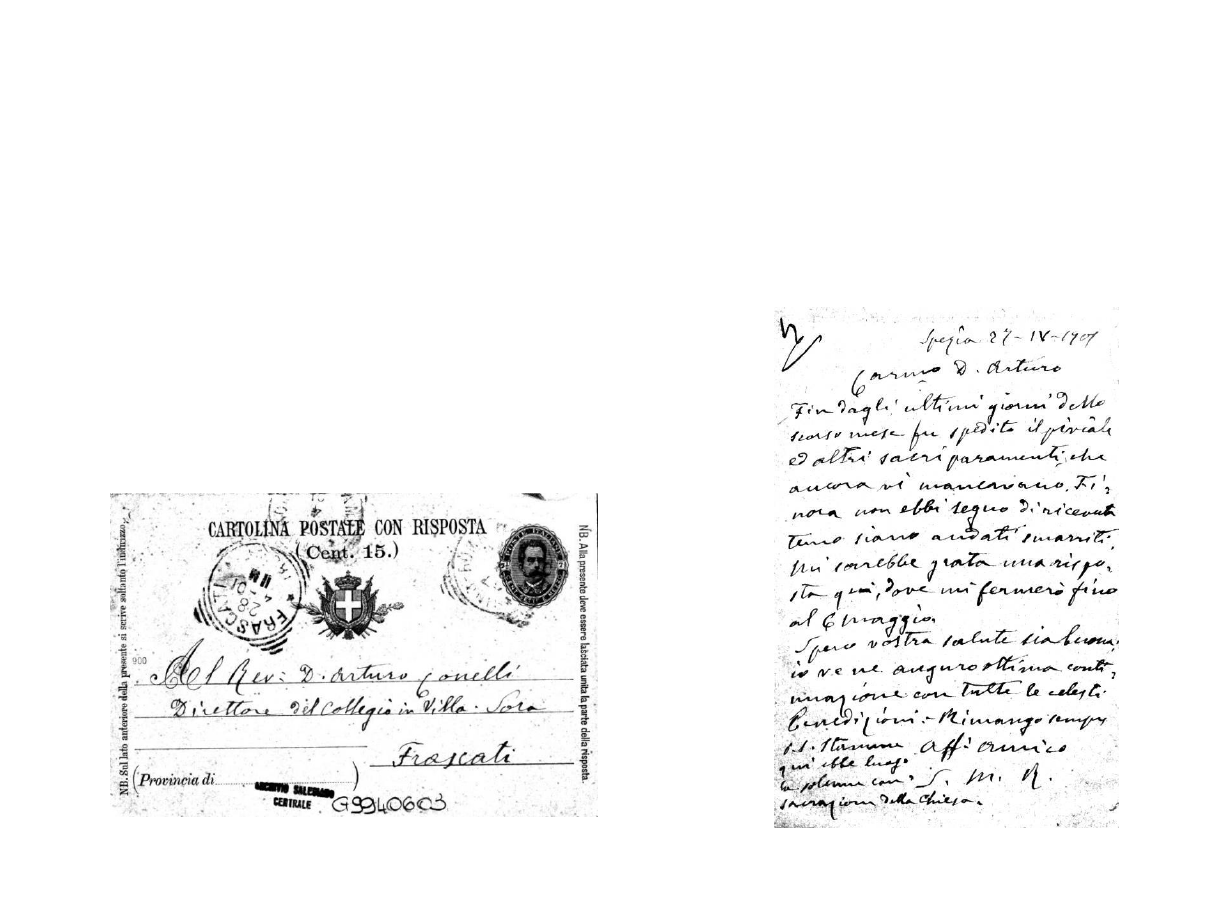 CARTOLINA POSTALE CON RISPOSTA
(Cent. 15.)
NB. Sul lato anteriore della presente si scrive soltanto l'indirizzo.
NB. Alla presente deve essere lasciata unita la parte della risposta.
FRASCATI
4 - 01
28
11 M
900
Al Rev: D. Arturo Conelli
Direttore del Collegio in Villa-Sora
Frascati
(Provincia di )
ARCHIVIO SALESIANO
CENTRALE
G9940603
Spezia 27-IV-1901
Carmo D. Arturo
Fin dagli ultimi giorni dello
scorso mese fu spedito il piviale
ed altri sacri paramenti, che
ancora vi mancavano. Fi-
nora non ebbi segno di ricevuta
siano andati smarriti.
Mi sarebbe grata una rispo-
sta qui, dove mi fermerò fino
al 6 Maggio.
Spero vostra salute sia buona;
io ve ne auguro ottima conti-
nuazione con tutte le celesti
benedizioni.- Rimango sempre
Aff: amico
S. M. R.
P.S. Stamane
qui ebbe luogo
la solenne con-
sacrazione della Chiesa.